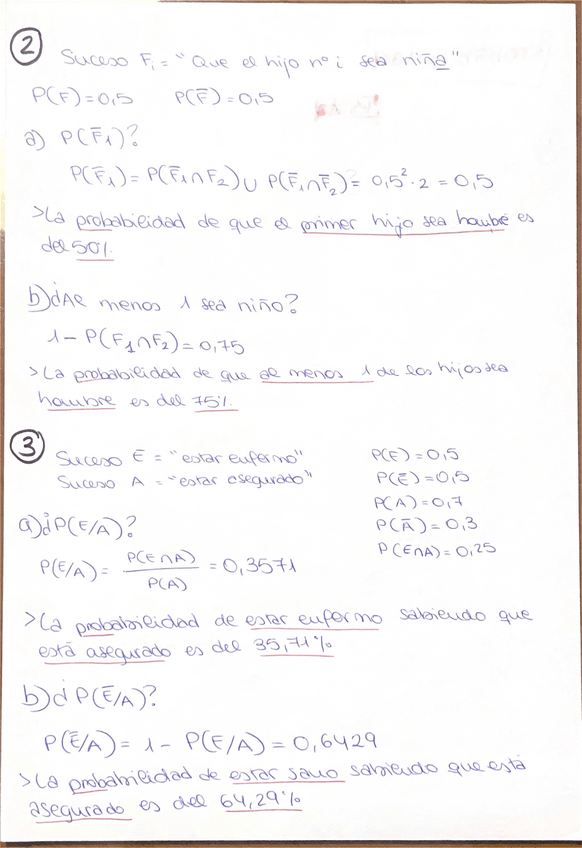 2
Suceso Fi = "Que el hijo nº i sea niña"
P(F) = 0,5 P(F̄) = 0,5
a) P(F̄1)?
P(F̄1) = P(F̄1∩F2) ∪ P(F̄1∩F̄2) = 0,5² · 2 = 0,5
>La probabilidad de que el primer hijo sea hombre es
del 50%.
b) ¿Al menos 1 sea niño?
1 - P(F1∩F2) = 0,75
>La probabilidad de que al menos 1 de los hijos sea
hombre es del 75%.
3
Suceso E = "estar enfermo"
Suceso A = "estar asegurado"
P(E) = 0,5
P(Ē) = 0,5
P(A) = 0,7
P(Ā) = 0,3
P(E∩A) = 0,25
a) ¿P(E/A)?
P(E/A) = P(E∩A) / P(A) = 0,3571
>La probabilidad de estar enfermo sabiendo que
está asegurado es del 35,71%
b) ¿P(Ē/A)?
P(Ē/A) = 1 - P(E/A) = 0,6429
>La probabilidad de estar sano sabiendo que está
asegurado es del 64,29%